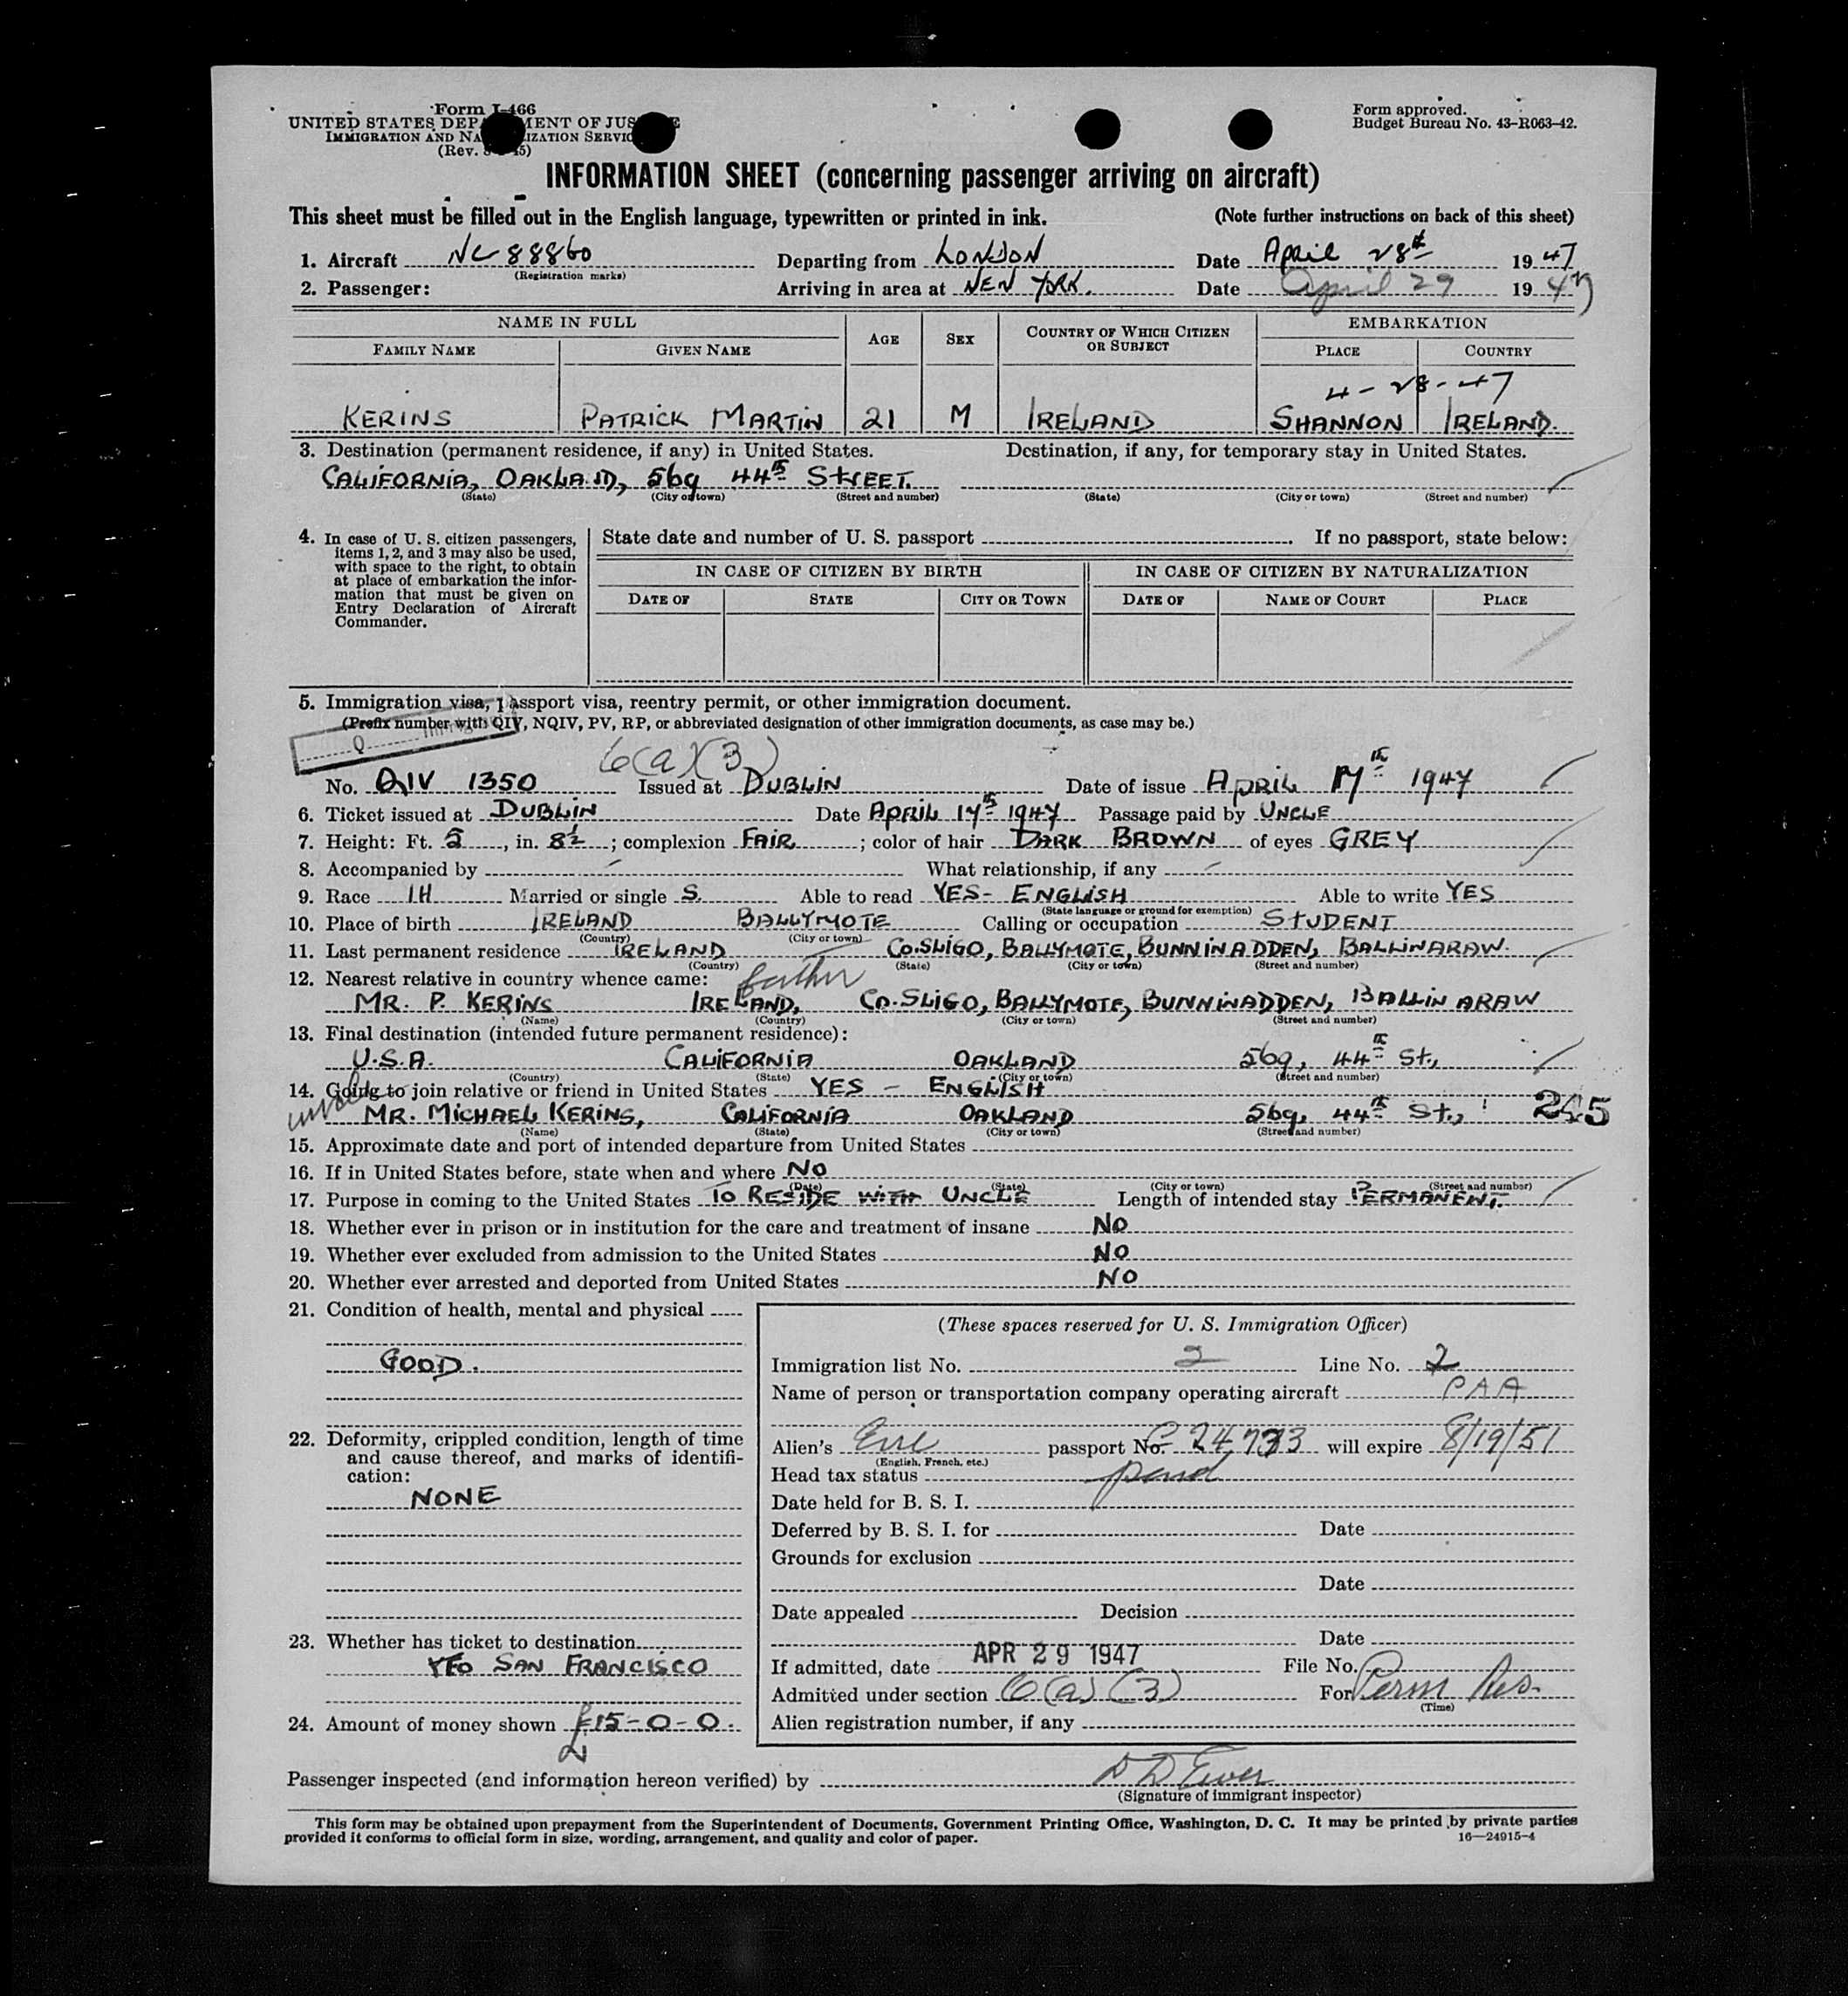 Form I-466
UNITED STATES DEPARTMENT OF JUSTICE
IMMIGRATION AND NATURALIZATION SERVICE
(Rev.
Form approved.
Budget Bureau No. 43-R063-42.
INFORMATION SHEET (concerning passenger arriving on aircraft)
This sheet must be filled out in the English language, typewritten or printed in ink. (Note further instructions on back of this sheet)
1. Aircraft NC 88860 Departing from LONDON Date April 28th 1947
(Registration marks)
2. Passenger: Arriving in area at NEW YORK. Date April 29 1947
NAME IN FULL AGE SEX COUNTRY OF WHICH CITIZEN OR SUBJECT EMBARKATION
FAMILY NAME GIVEN NAME PLACE COUNTRY
4-28-47
KERINS PATRICK MARTIN 21 M IRELAND SHANNON IRELAND.
3. Destination (permanent residence, if any) in United States. Destination, if any, for temporary stay in United States.
CALIFORNIA, OAKLAND, 569 44th STREET.
(State) (City or town) (Street and number) (State) (City or town) (Street and number)
4. In case of U. S. citizen passengers, items 1, 2, and 3 may also be used, with space to the right, to obtain at place of embarkation the information that must be given on Entry Declaration of Aircraft Commander.
State date and number of U. S. passport . If no passport, state below:
IN CASE OF CITIZEN BY BIRTH IN CASE OF CITIZEN BY NATURALIZATION
DATE OF STATE CITY OR TOWN DATE OF NAME OF COURT PLACE
5. Immigration visa, passport visa, reentry permit, or other immigration document.
(Prefix number with QIV, NQIV, PV, RP, or abbreviated designation of other immigration documents, as case may be.)
Q
6(a)(3)
No. QIV 1350 Issued at DUBLIN Date of issue APRIL 17th 1947
6. Ticket issued at DUBLIN Date APRIL 17th 1947 Passage paid by UNCLE
7. Height: Ft. 5, in. 8½; complexion FAIR; color of hair DARK BROWN of eyes GREY
8. Accompanied by What relationship, if any
9. Race IH Married or single S. Able to read YES - ENGLISH Able to write YES
(State language or ground for exemption)
10. Place of birth IRELAND BALLYMOTE Calling or occupation STUDENT
(Country) (City or town)
11. Last permanent residence IRELAND CO. SLIGO, BALLYMOTE, BUNNINADDEN, BALLINARAW.
(Country) (State) (City or town) (Street and number)
12. Nearest relative in country whence came: father
MR. P. KERINS IRELAND, CO. SLIGO, BALLYMOTE, BUNNINADDEN, BALLINARAW
(Name) (Country) (City or town) (Street and number)
13. Final destination (intended future permanent residence):
U.S.A. CALIFORNIA OAKLAND 569, 44th St.,
(Country) (State) (City or town) (Street and number)
14. Going to join relative or friend in United States YES - ENGLISH
uncle MR. MICHAEL KERINS, CALIFORNIA OAKLAND 569, 44th St., 245
(Name) (State) (City or town) (Street and number)
15. Approximate date and port of intended departure from United States
16. If in United States before, state when and where NO
(Date) (State) (City or town) (Street and number)
17. Purpose in coming to the United States TO RESIDE WITH UNCLE Length of intended stay PERMANENT.
18. Whether ever in prison or in institution for the care and treatment of insane NO
19. Whether ever excluded from admission to the United States NO
20. Whether ever arrested and deported from United States NO
21. Condition of health, mental and physical
GOOD.
22. Deformity, crippled condition, length of time and cause thereof, and marks of identification:
NONE
23. Whether has ticket to destination
SAN FRANCISCO
24. Amount of money shown £15-0-0.
(These spaces reserved for U. S. Immigration Officer)
Immigration list No. 2 Line No. 2
Name of person or transportation company operating aircraft PAA
Alien's Eire passport No. 24733 will expire 8/19/51
(English, French, etc.)
Head tax status paid
Date held for B. S. I.
Deferred by B. S. I. for Date
Grounds for exclusion
Date
Date appealed Decision
Date
If admitted, date APR 29 1947 File No.
Admitted under section 6(a)(3) For Perm Res.
(Time)
Alien registration number, if any
Passenger inspected (and information hereon verified) by
(Signature of immigrant inspector)
This form may be obtained upon prepayment from the Superintendent of Documents, Government Printing Office, Washington, D. C. It may be printed by private parties
provided it conforms to official form in size, wording, arrangement, and quality and color of paper. 16—24915-4